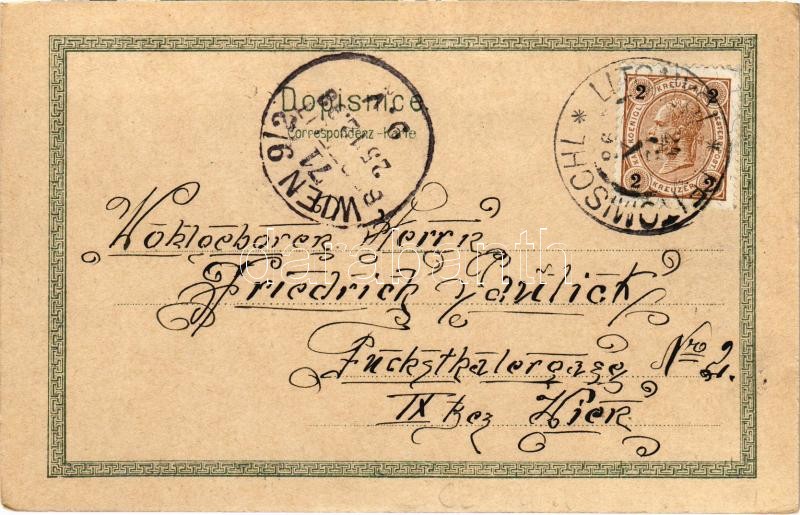 Dopisnice
Correspondenz-Karte
WIEN 9/2
71
25
LITOMYŠL * LEITOMISCHL *
2 KREUZER 2
2 KREUZER 2
Woklgeboren Herrn
Friedrich Paulick
Fuchsthalergasse Nro 2.
IX bez Wien
darabanth